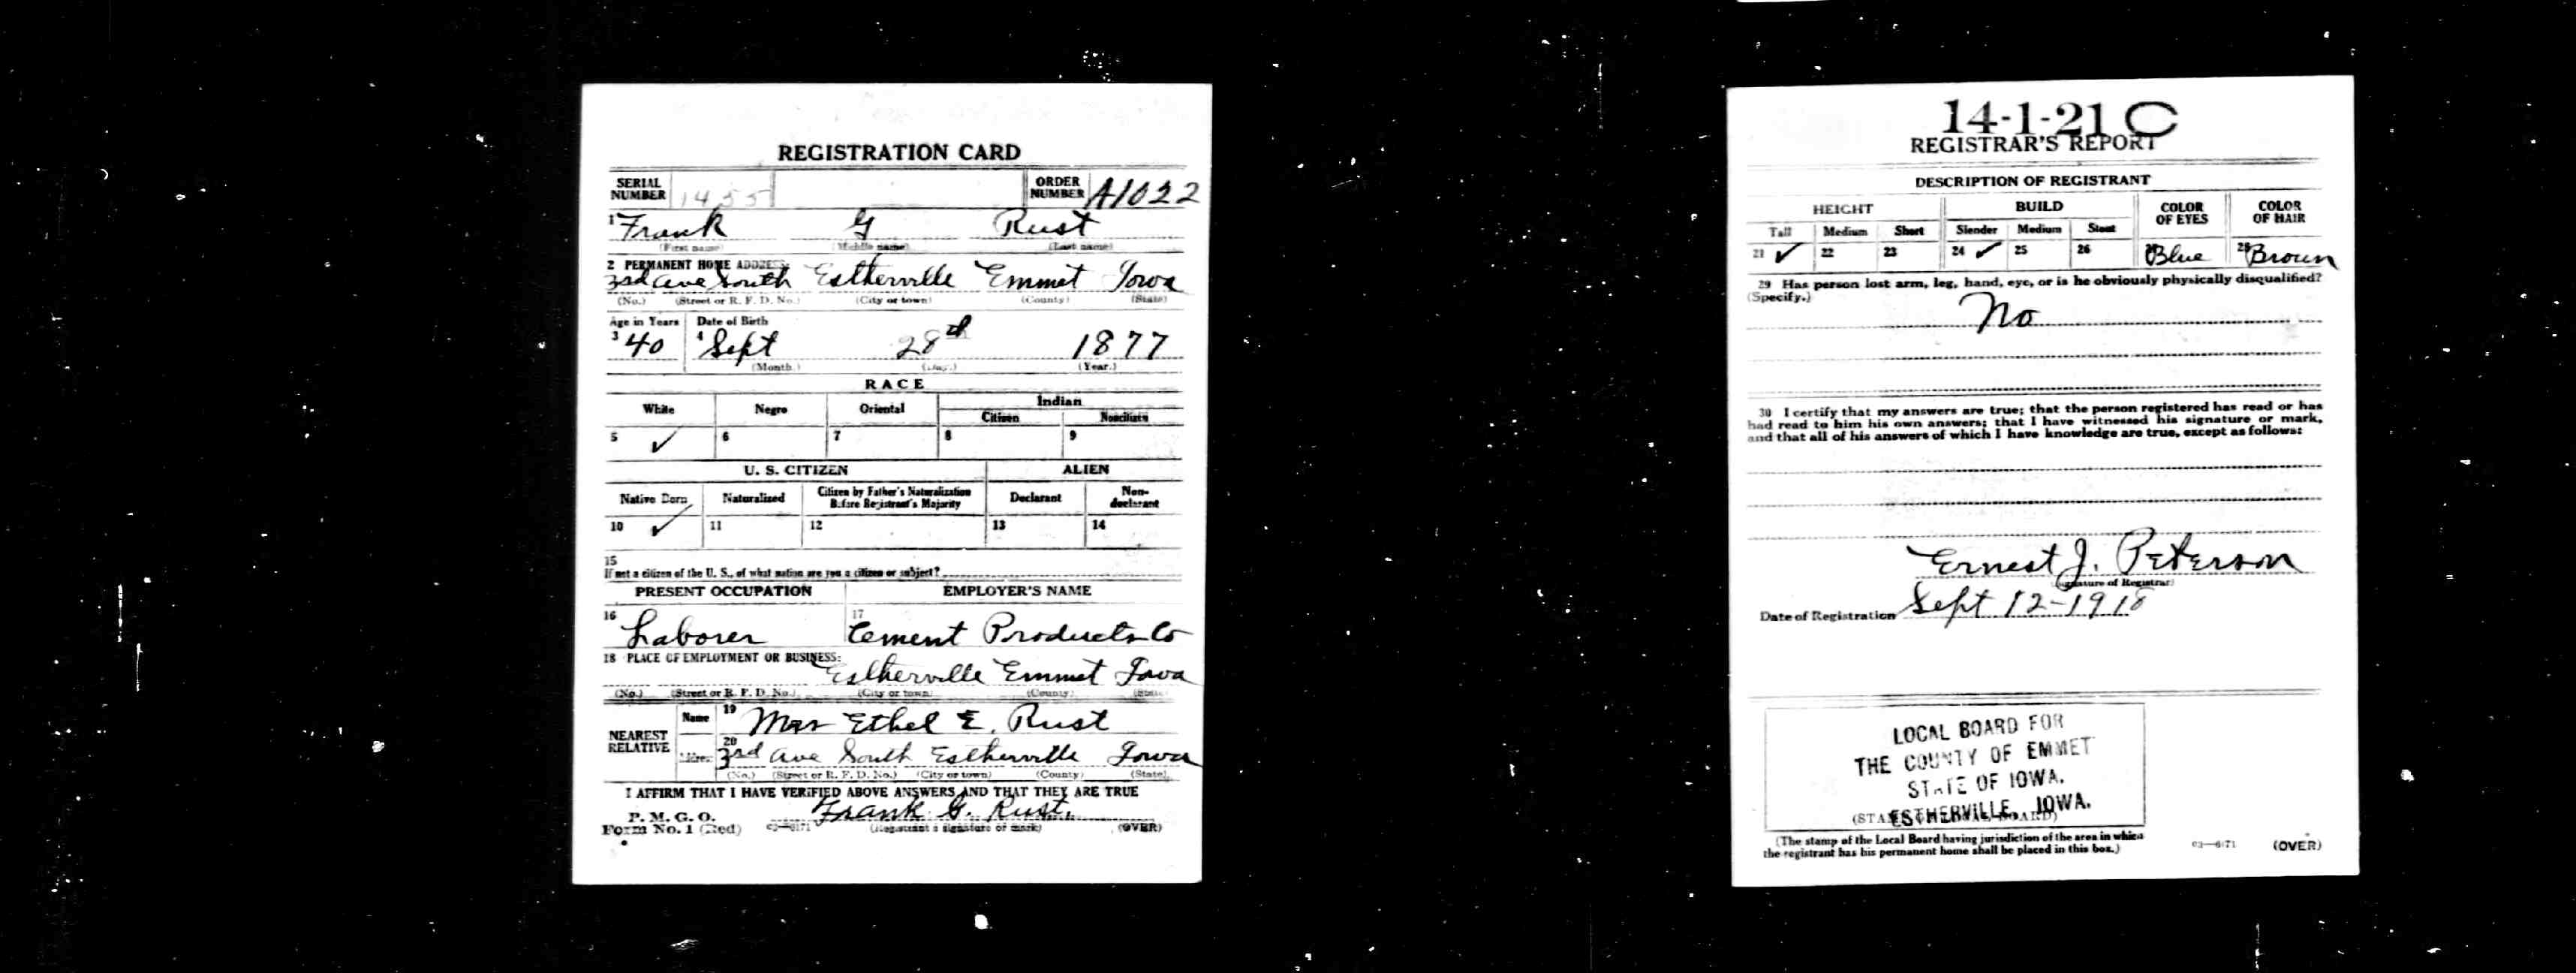 REGISTRATION CARD
SERIAL NUMBER 1455 ORDER NUMBER A1022
1 Frank G Rust
(First name) (Middle name) (Last name)
2 PERMANENT HOME ADDRESS:
3rd Ave South Estherville Emmet Iowa
(No.) (Street or R. F. D. No.) (City or town) (County) (State)
Age in Years Date of Birth
3 40 4 Sept 28th 1877
(Month.) (Day.) (Year.)
RACE
White Negro Oriental Indian
Citizen Noncitizen
5 ✓ 6 7 8 9
U. S. CITIZEN ALIEN
Native Born Naturalized Citizen by Father's Naturalization Before Registrant's Majority Declarant Non-declarant
10 ✓ 11 12 13 14
15
If not a citizen of the U. S., of what nation are you a citizen or subject?
PRESENT OCCUPATION EMPLOYER'S NAME
16 Laborer 17 Cement Products Co
18 PLACE OF EMPLOYMENT OR BUSINESS:
Estherville Emmet Iowa
(No.) (Street or R. F. D. No.) (City or town) (County) (State)
NEAREST RELATIVE Name 19 Mrs Ethel E. Rust
Address 20 3rd Ave South Estherville Iowa
(No.) (Street or R. F. D. No.) (City or town) (County) (State)
I AFFIRM THAT I HAVE VERIFIED ABOVE ANSWERS AND THAT THEY ARE TRUE
P. M. G. O.
Form No. 1 (Red) 03—6171 Frank G. Rust.
(Registrant's signature or mark) (OVER)
14-1-21 C
REGISTRAR'S REPORT
DESCRIPTION OF REGISTRANT
HEIGHT BUILD COLOR OF EYES COLOR OF HAIR
Tall Medium Short Slender Medium Stout
21 ✓ 22 23 24 ✓ 25 26 27 Blue 28 Brown
29 Has person lost arm, leg, hand, eye, or is he obviously physically disqualified?
(Specify.)
No
30 I certify that my answers are true; that the person registered has read or has
had read to him his own answers; that I have witnessed his signature or mark,
and that all of his answers of which I have knowledge are true, except as follows:
Ernest J. Peterson
(Signature of Registrar)
Date of Registration Sept 12-1918
LOCAL BOARD FOR
THE COUNTY OF EMMET
STATE OF IOWA.
ESTHERVILLE, IOWA.
(The stamp of the Local Board having jurisdiction of the area in which
the registrant has his permanent home shall be placed in this box.)
03—6171 (OVER)